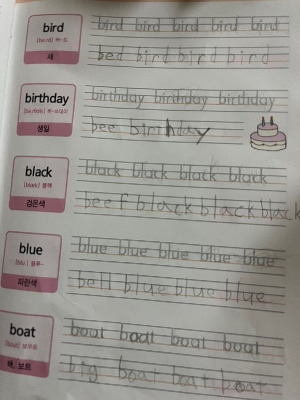 bird
bird bird bird bird bird
[bəːrd] 버-드
새
bed bird bird bird
birthday
birthday birthday birthday
생일
bee birthday
black
black black black black
[blæk] 블랙
검은색
beef black black black
blue
blue blue blue blue blue
[bluː] 블루-
파란색
bell blue blue blue
boat
boat boat boat boat
[bout] 보우트
배, 보트
big boat boat boat